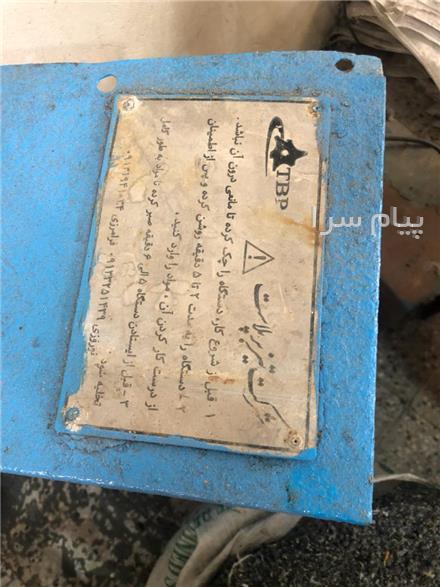 TBP
شرکت تبریز پلاست
۱- قبل از شروع کار، دستگاه را چک کرده تا مانعی درون آن نباشد.
۲- دستگاه را به مدت ۲ تا ۵ دقیقه روشن کرده و پس از اطمینان
از درست کار کردن آن، مواد را وارد کنید.
۳- قبل از ایستادن دستگاه ۵ الی ۶ دقیقه صبر کرده تا مواد به طور کامل
تخلیه شود.
نوروزی
فرامرزی
پیام سرا